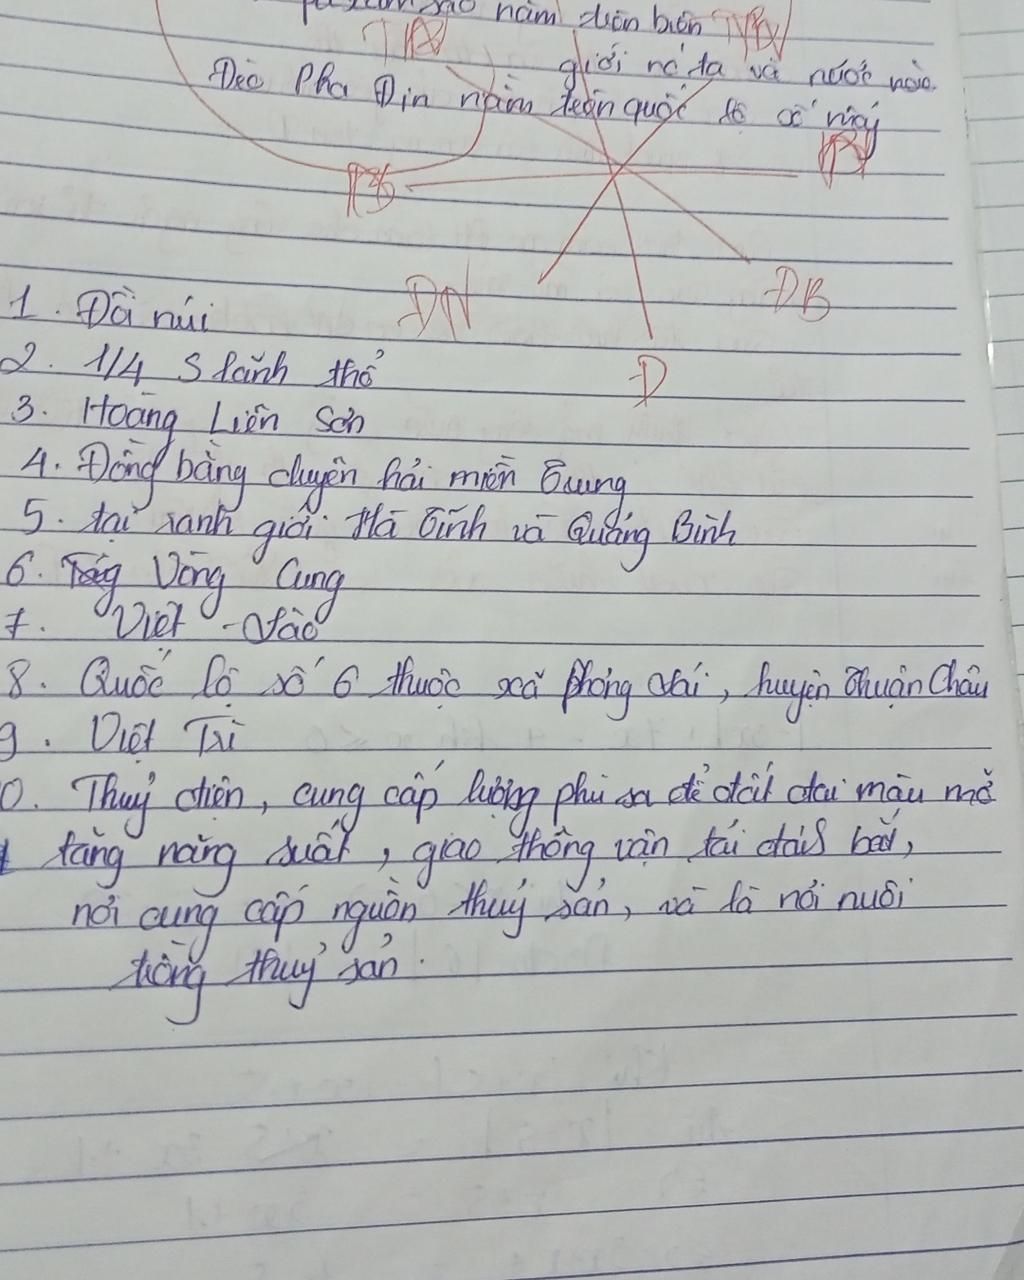 nằm trên biên
TN TB
giới nc ta và nước nào.
Đèo Pha Đin nằm trên quốc lộ số mấy
B
N
ĐN
ĐB
1. Đồi núi
Đ
2. 1/4 S lãnh thổ
3. Hoàng Liên Sơn
4. Đồng bằng duyên hải miền Trung
5. tại ranh giới Hà Tĩnh và Quảng Bình
6. Vòng Cung
7. Việt - Lào
8. Quốc lộ số 6 thuộc xã Phỏng Lái, huyện Thuận Châu
9. Việt Trì
0. Thuỷ điện, cung cấp lượng phù sa để đất đai màu mỡ
tăng năng suất, giao thông vận tải
nơi cung cấp nguồn thuỷ sản, và là nơi nuôi
trồng thuỷ sản.